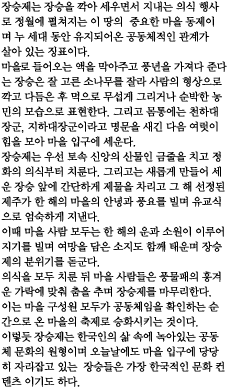 장승제는 장승을 깎아 세우면서 지내는 의식 행사
로 정월에 펼쳐지는 이 땅의 중요한 마을 동제이
며 누 세대 동안 유지되어온 공동체적인 관계가
살아 있는 징표이다.
마을로 들어오는 액을 막아주고 풍년을 가져다 준다
는 장승은 잘 고른 소나무를 잘라 사람의 형상으로
깍고 다듬은 후 먹으로 무섭게 그리거나 순박한 농
민의 모습으로 표현한다. 그리고 몸통에는 천하대
장군, 지하대장군이라고 명문을 새긴 다음 여럿이
힘을 모아 마을 입구에 세운다.
장승제는 우선 토속 신앙의 산물인 금줄을 치고 정
화의 의식부터 치룬다. 그리고는 새롭게 만들어 세
운 장승 앞에 간단하게 제물을 차리고 그 해 선정된
제주가 한 해의 마을의 안녕과 풍요를 빌며 유교식
으로 엄숙하게 지낸다.
이때 마을 사람 모두는 한 해의 운과 소원이 이루어
지기를 빌며 여망을 담은 소지도 함께 태운며 장승
제의 분위기를 돋군다.
의식을 모두 치룬 뒤 마을 사람들은 풍물패의 흥겨
운 가락에 맞춰 춤을 추며 장승제를 마무리한다.
이는 마을 구성원 모두가 공동체임을 확인하는 순
간으로 온 마을의 축제로 승화시키는 것이다.
이렇듯 장승제는 한국인의 삶 속에 녹아있는 공동
체 문화의 원형이며 오늘날에도 마을 입구에 당당
히 자리잡고 있는 장승들은 가장 한국적인 문화 컨
텐츠 이기도 하다.